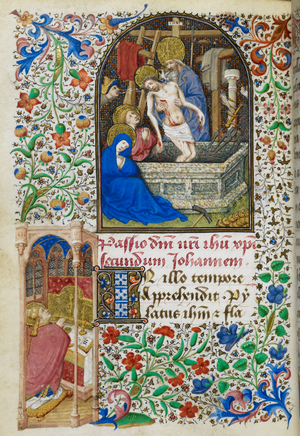 Passio dñi nr̄i ihū xp̄i
secundum Johannem
IN illo tempore
Aprehendit py
latus ihm̄ ⁊ fla